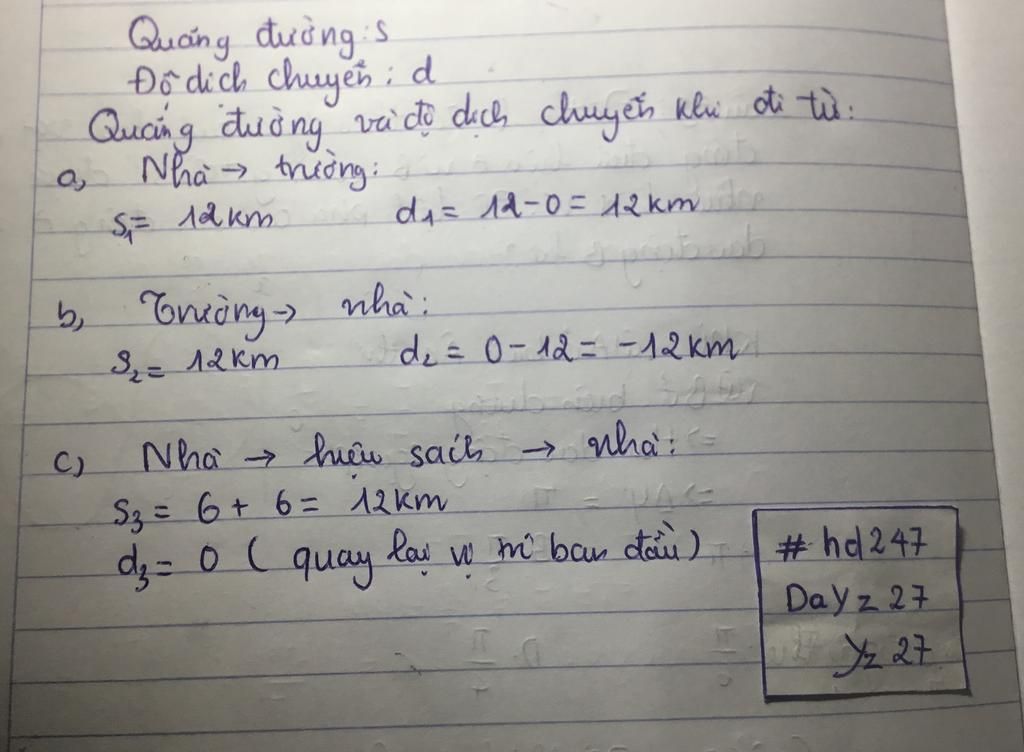 Quãng đường: s
Độ dịch chuyển: d
Quãng đường và độ dịch chuyển khi đi từ:
a, Nhà → trường:
S₁= 12km d₁ = 12-0 = 12km
b, Trường → nhà:
S₂= 12km d₂ = 0-12 = -12km
c) Nhà → hiệu sách → nhà:
S₃ = 6 + 6 = 12km
d₃ = 0 ( quay lại vị trí ban đầu)
# hd247
DaYz 27
Yz 27